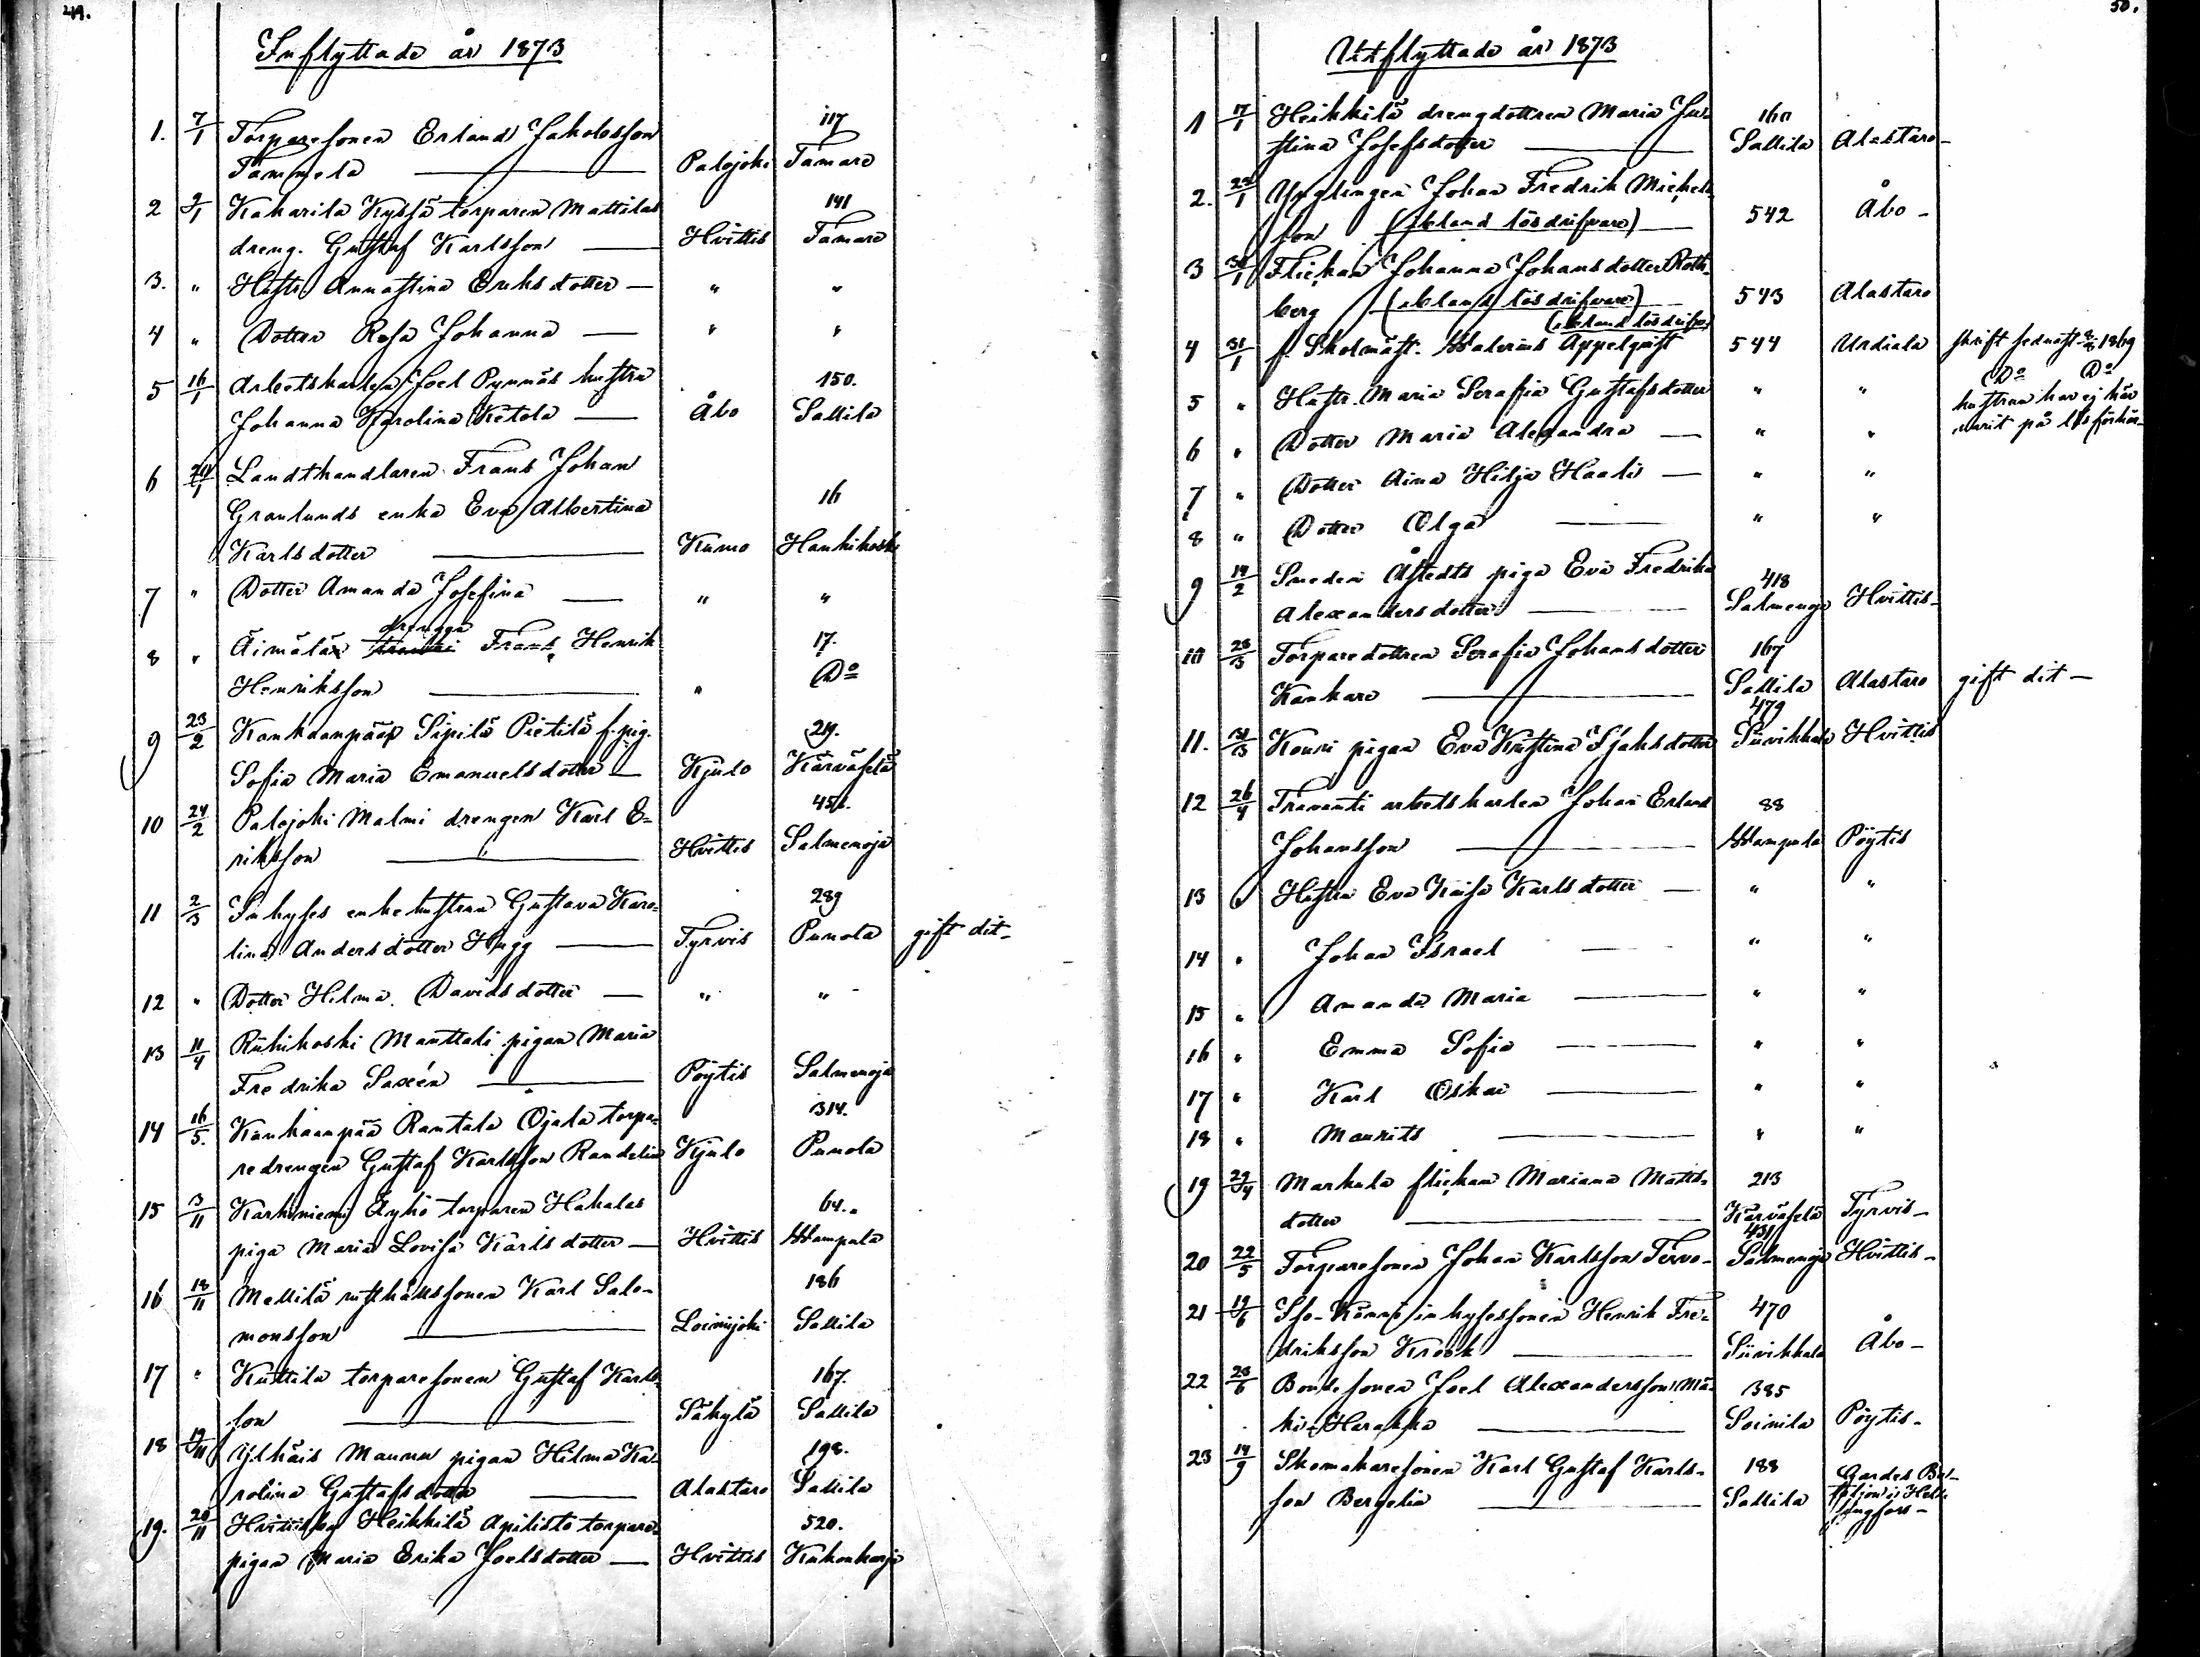 49.
Inflyttade år 1873
1. 7/1 Torparesonen Erland Jakobsson 117
Tammela — Palojoki Tamare
2 9/1 Kakarila Kyssä torparen Mattilas 141
dreng. Gustaf Karlsson — Hvittis Tamare
3. " Hustr. Annastina Eriksdotter — " "
4 " Dotter Rosa Johanna — " "
5 16/1 Arbetskarlen Joel Pynnäs hustru 150.
Johanna Karolina Ketola — Åbo Sallila
6 24/1 Landthandlaren Frans Johan
Granlunds enka Eva Albertina 16
Karlsdotter — Kumo Hankikoski
7 " Dotter Amanda Josefina — " "
drengen
8 " Äimälä Frans Henrik 17.
Henriksson — " Do
9 23/2 Kankaanpää Sipilä Pietilä f. pig. 29.
Sofia Maria Emanuelsdotter — Kjulo Kärväselä
10 24/2 Palojoki Malmi drengen Karl E- 451.
riksson — Hvittis Salmenoja
11 2/3 Inhyses enkehustrun Gustava Karo- 289
lina Andersdotter Hugg — Tyrvis Punola gift dit-
12 " Dotter Hilma Davidsdotter — " "
13 11/4 Riihikoski Manttali pigan Maria
Fredrika Saxén — Pöytis Salmenoja
14 16/5. Kankaanpää Rantala Ojala torpa- 314.
redrengen Gustaf Karlsson Randelin Kjulo Punola
15 3/11 Karhiniemi Äyhö torparen Hakalas 64.
piga Maria Lovisa Karlsdotter — Hvittis Wampula
16 18/11 Mellilä rusthållssonen Karl Salo- 186
monsson — Loimijoki Sallila
17 " Kuttila torparesonen Gustaf Karls- 167.
son — Säkylä Sallila
18 19/11 Ylhäis Maunu pigan Hilma Ka- 198.
rolina Gustafsdotter — Alastaro Sallila
19. 20/11 Heikkilä Apilisto torpare- 520.
pigan Maria Erika Joelsdotter — Hvittis Kukonharja
50.
Utflyttade år 1873
1 17/1 Heikkilä drengdottren Maria Ju- 160
stina Josefsdotter — Sallila Alastaro-
2. 22/1 Ynglingen Johan Fredrik Mickels-
son (bland lösdrifvare) — 542 Åbo-
3 30/1 Flickan Johanna Johansdotter Roth-
berg (bland lösdrifvare) — 543 Alastaro
(bland lösdrifv.)
4 31/1 f. Skolmäst. Walerius Appelqvist 544 Urdiala skrift sednast 8/8 1869
5 " Hustr. Maria Serafia Gustafsdotter " " Do Do
6 " Dotter Maria Alexandra — " " hustrun har ej här
varit på läsförhör-
7 " Dotter Aina Hilja Haali — " "
8 " Dotter Olga — " "
9 14/2 Smeden Åstedts piga Eva Fredrika 418
Alexandersdotter — Salmenoja Hvittis-
10 28/3 Torparedottren Serafia Johansdotter 167
Kankare — Sallila Alastaro gift dit —
11. 31/3 Kouri pigan Eva Kristina Isaksdotter 479 Siivikkala Hvittis
12 26/4 Fravanti arbetskarlen Johan Erland 88
Johansson — Wampula Pöytis
13 " Hustru Eva Kaisa Karlsdotter — " "
14 " Johan Israel — " "
15 " Amanda Maria — " "
16 " Emma Sofia — " "
17 " Karl Oskar — " "
18 " Maurits — " "
19 29/4 Markula flickan Mariana Matts- 213
dotter — Kärväselä Tyrvis-
20 22/5 Torparesonen Johan Karlsson Tervo- 431 Salmenoja Hvittis-
21 19/6 Iso-Kånni inhysessonen Henrik Fre- 470
driksson Krook — Siivikkala Åbo-
22 28/6 Bondesonen Joel Alexandersson Mä- 385
ki-Harakka — Soinila Pöytis-
23 14/9 Skomakaresonen Karl Gustaf Karls- 188 Gardes Ba-
son Bergelin — Sallila taljon i Hel-
singfors-